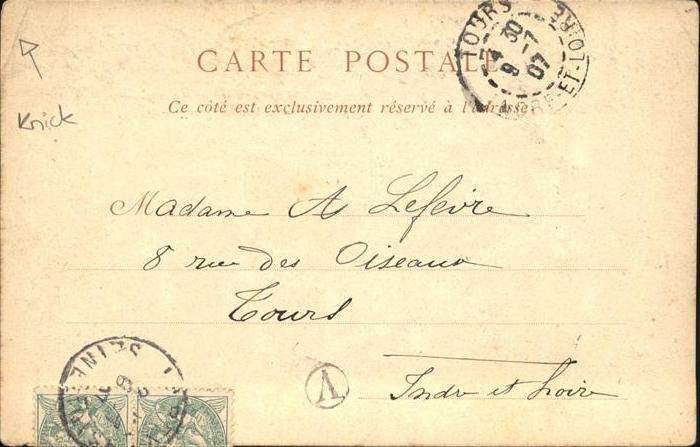 CARTE POSTALE
Ce côté est exclusivement réservé à l'adresse
TOURS
INDRE-ET-LOIRE
30
9 -7
07
Knick
Madame A Lefèvre
8 rue des Oiseaux
Tours
Indre et Loire
V
SEINE